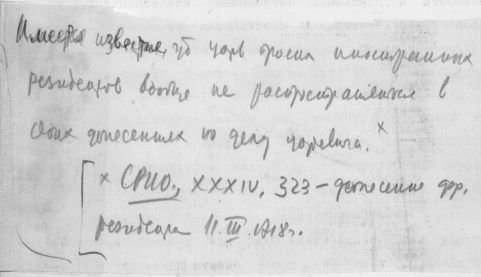 Имеется известие, что царь просил иностранных
резидентов вообще не распространяться в
своих донесениях по делу царевича. ×
× СРИО, XXXIV, 323 – донесение фр.
резидента 11.III.1718 г.